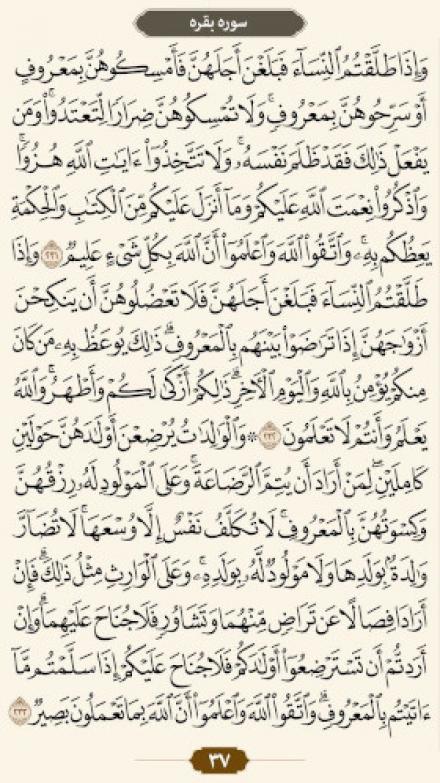 سوره بقره
وَإِذَا طَلَّقْتُمُ ٱلنِّسَآءَ فَبَلَغْنَ أَجَلَهُنَّ فَأَمْسِكُوهُنَّ بِمَعْرُوفٍ
أَوْ سَرِّحُوهُنَّ بِمَعْرُوفٍ ۚ وَلَا تُمْسِكُوهُنَّ ضِرَارًا لِّتَعْتَدُوا۟ ۚ وَمَن
يَفْعَلْ ذَٰلِكَ فَقَدْ ظَلَمَ نَفْسَهُۥ ۚ وَلَا تَتَّخِذُوٓا۟ ءَايَٰتِ ٱللَّهِ هُزُوًا ۚ
وَٱذْكُرُوا۟ نِعْمَتَ ٱللَّهِ عَلَيْكُمْ وَمَآ أَنزَلَ عَلَيْكُم مِّنَ ٱلْكِتَٰبِ وَٱلْحِكْمَةِ
يَعِظُكُم بِهِۦ ۚ وَٱتَّقُوا۟ ٱللَّهَ وَٱعْلَمُوٓا۟ أَنَّ ٱللَّهَ بِكُلِّ شَىْءٍ عَلِيمٌ ۝٢٣١ وَإِذَا
طَلَّقْتُمُ ٱلنِّسَآءَ فَبَلَغْنَ أَجَلَهُنَّ فَلَا تَعْضُلُوهُنَّ أَن يَنكِحْنَ
أَزْوَٰجَهُنَّ إِذَا تَرَٰضَوْا۟ بَيْنَهُم بِٱلْمَعْرُوفِ ۗ ذَٰلِكَ يُوعَظُ بِهِۦ مَن كَانَ
مِنكُمْ يُؤْمِنُ بِٱللَّهِ وَٱلْيَوْمِ ٱلْءَاخِرِ ۗ ذَٰلِكُمْ أَزْكَىٰ لَكُمْ وَأَطْهَرُ ۗ وَٱللَّهُ
يَعْلَمُ وَأَنتُمْ لَا تَعْلَمُونَ ۝٢٣٢ ۞ وَٱلْوَٰلِدَٰتُ يُرْضِعْنَ أَوْلَٰدَهُنَّ حَوْلَيْنِ
كَامِلَيْنِ ۖ لِمَنْ أَرَادَ أَن يُتِمَّ ٱلرَّضَاعَةَ ۚ وَعَلَى ٱلْمَوْلُودِ لَهُۥ رِزْقُهُنَّ
وَكِسْوَتُهُنَّ بِٱلْمَعْرُوفِ ۚ لَا تُكَلَّفُ نَفْسٌ إِلَّا وُسْعَهَا ۚ لَا تُضَآرَّ
وَٰلِدَةٌۢ بِوَلَدِهَا وَلَا مَوْلُودٌ لَّهُۥ بِوَلَدِهِۦ ۚ وَعَلَى ٱلْوَارِثِ مِثْلُ ذَٰلِكَ ۗ فَإِنْ
أَرَادَا فِصَالًا عَن تَرَاضٍ مِّنْهُمَا وَتَشَاوُرٍ فَلَا جُنَاحَ عَلَيْهِمَا ۗ وَإِنْ
أَرَدتُّمْ أَن تَسْتَرْضِعُوٓا۟ أَوْلَٰدَكُمْ فَلَا جُنَاحَ عَلَيْكُمْ إِذَا سَلَّمْتُم مَّآ
ءَاتَيْتُم بِٱلْمَعْرُوفِ ۗ وَٱتَّقُوا۟ ٱللَّهَ وَٱعْلَمُوٓا۟ أَنَّ ٱللَّهَ بِمَا تَعْمَلُونَ بَصِيرٌ ۝٢٣٣
٣٧